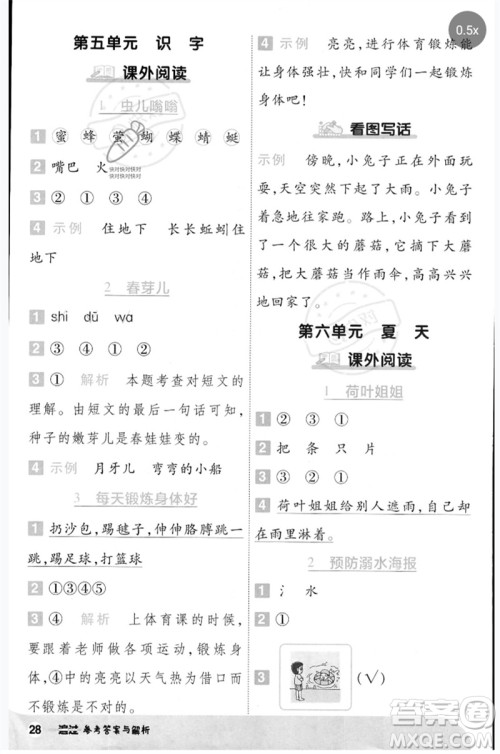 第五单元 识 字
课外阅读
1 虫儿嗡嗡
1 蜜 蜂 萤 蝴 蝶 蜻 蜓
2 嘴巴 火
3 ② ① ③ ④
4 示例 住地下 长长蚯蚓住
地下
2 春芽儿
1 shi dū wa
2 ③④①②
3 ① 解析 本题考查对短文的
理解。由短文的内容可知,
种子的嫩芽儿是春娃娃变的。
4 示例 月牙儿 弯弯的小船
3 每天锻炼身体好
1 扔沙包,踢毽子,伸伸胳膊跳一
跳,踢足球,打篮球
2 ①③④⑤
3 ④ 解析 上体育课的时候,
要跟着老师做运动,锻炼身
体,④中的亮亮以天气热为借口
不锻炼是不对的。
28 参考答案与解析
0.5x
4 示例 亮亮,进行体育锻炼能
让身体强壮,快和同学一起锻炼
身体吧!
看图写话
示例 傍晚,小兔子在外面玩
耍,天空突然下起了大雨。小兔
子急忙往家跑。路上,小兔子看
到了一个大大的蘑菇,它就把
大蘑菇当作雨伞,高高兴兴
地回家了。
第六单元 夏 天
课外阅读
1 荷叶姐姐
1 ② ① ③
2 把 条 只 片
3 ③ ② ①
4 荷叶姐姐给别人遮雨,自己却
在雨里淋着。
2 预防溺水海报
1 氵 水
2 ①
3 (√)
快对快对
快对快对